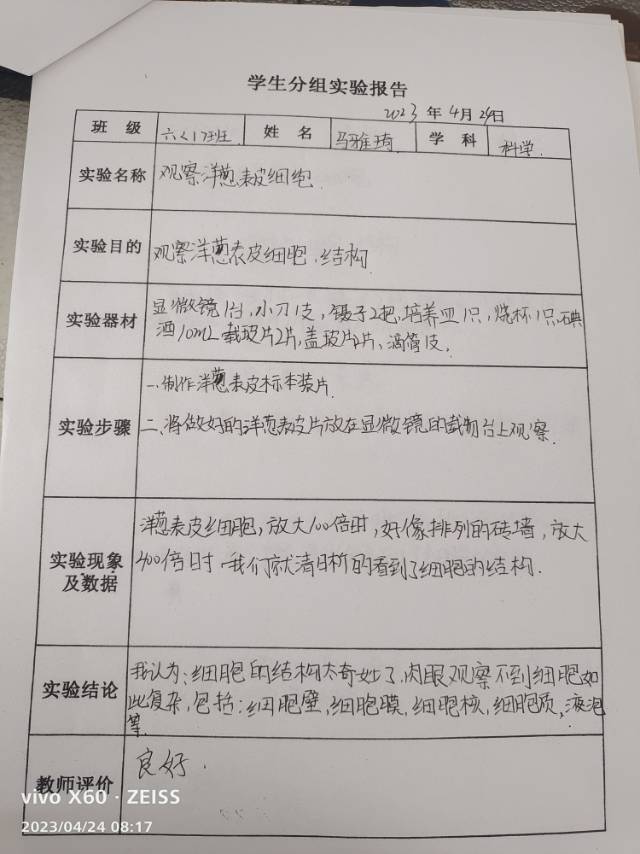 学生分组实验报告
2023 年 4 月 24日
班 级 六(1)班 姓 名 马雅琦 学 科 科学.
实验名称 观察洋葱表皮细胞.
实验目的 观察洋葱表皮细胞.结构
实验器材 显微镜1台,小刀1支,镊子2把,培养皿1只,烧杯1只,碘
酒10mL 载玻片2片,盖玻片2片,滴管1支.
一.制作洋葱表皮标本装片.
实验步骤 二.将做好的洋葱表皮片放在显微镜的载物台上观察.
洋葱表皮细胞,放大100倍时,好像排列的砖墙,放大
实验现象 400倍时.我们就清晰的看到了细胞的结构.
及数据
实验结论 我认为:细胞的结构太奇妙了,肉眼观察不到细胞如
此复杂,包括:细胞壁,细胞膜,细胞核,细胞质,液泡
等.
教师评价 良好.
vivo X60 · ZEISS
2023/04/24 08:17